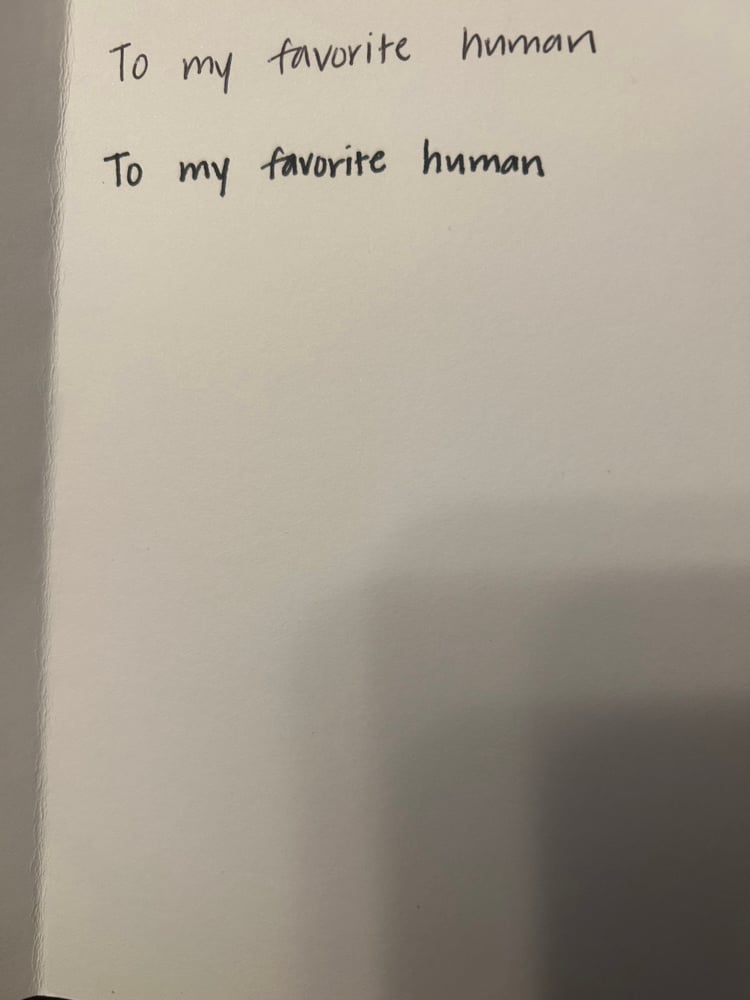 To my favorite human
To my favorite human